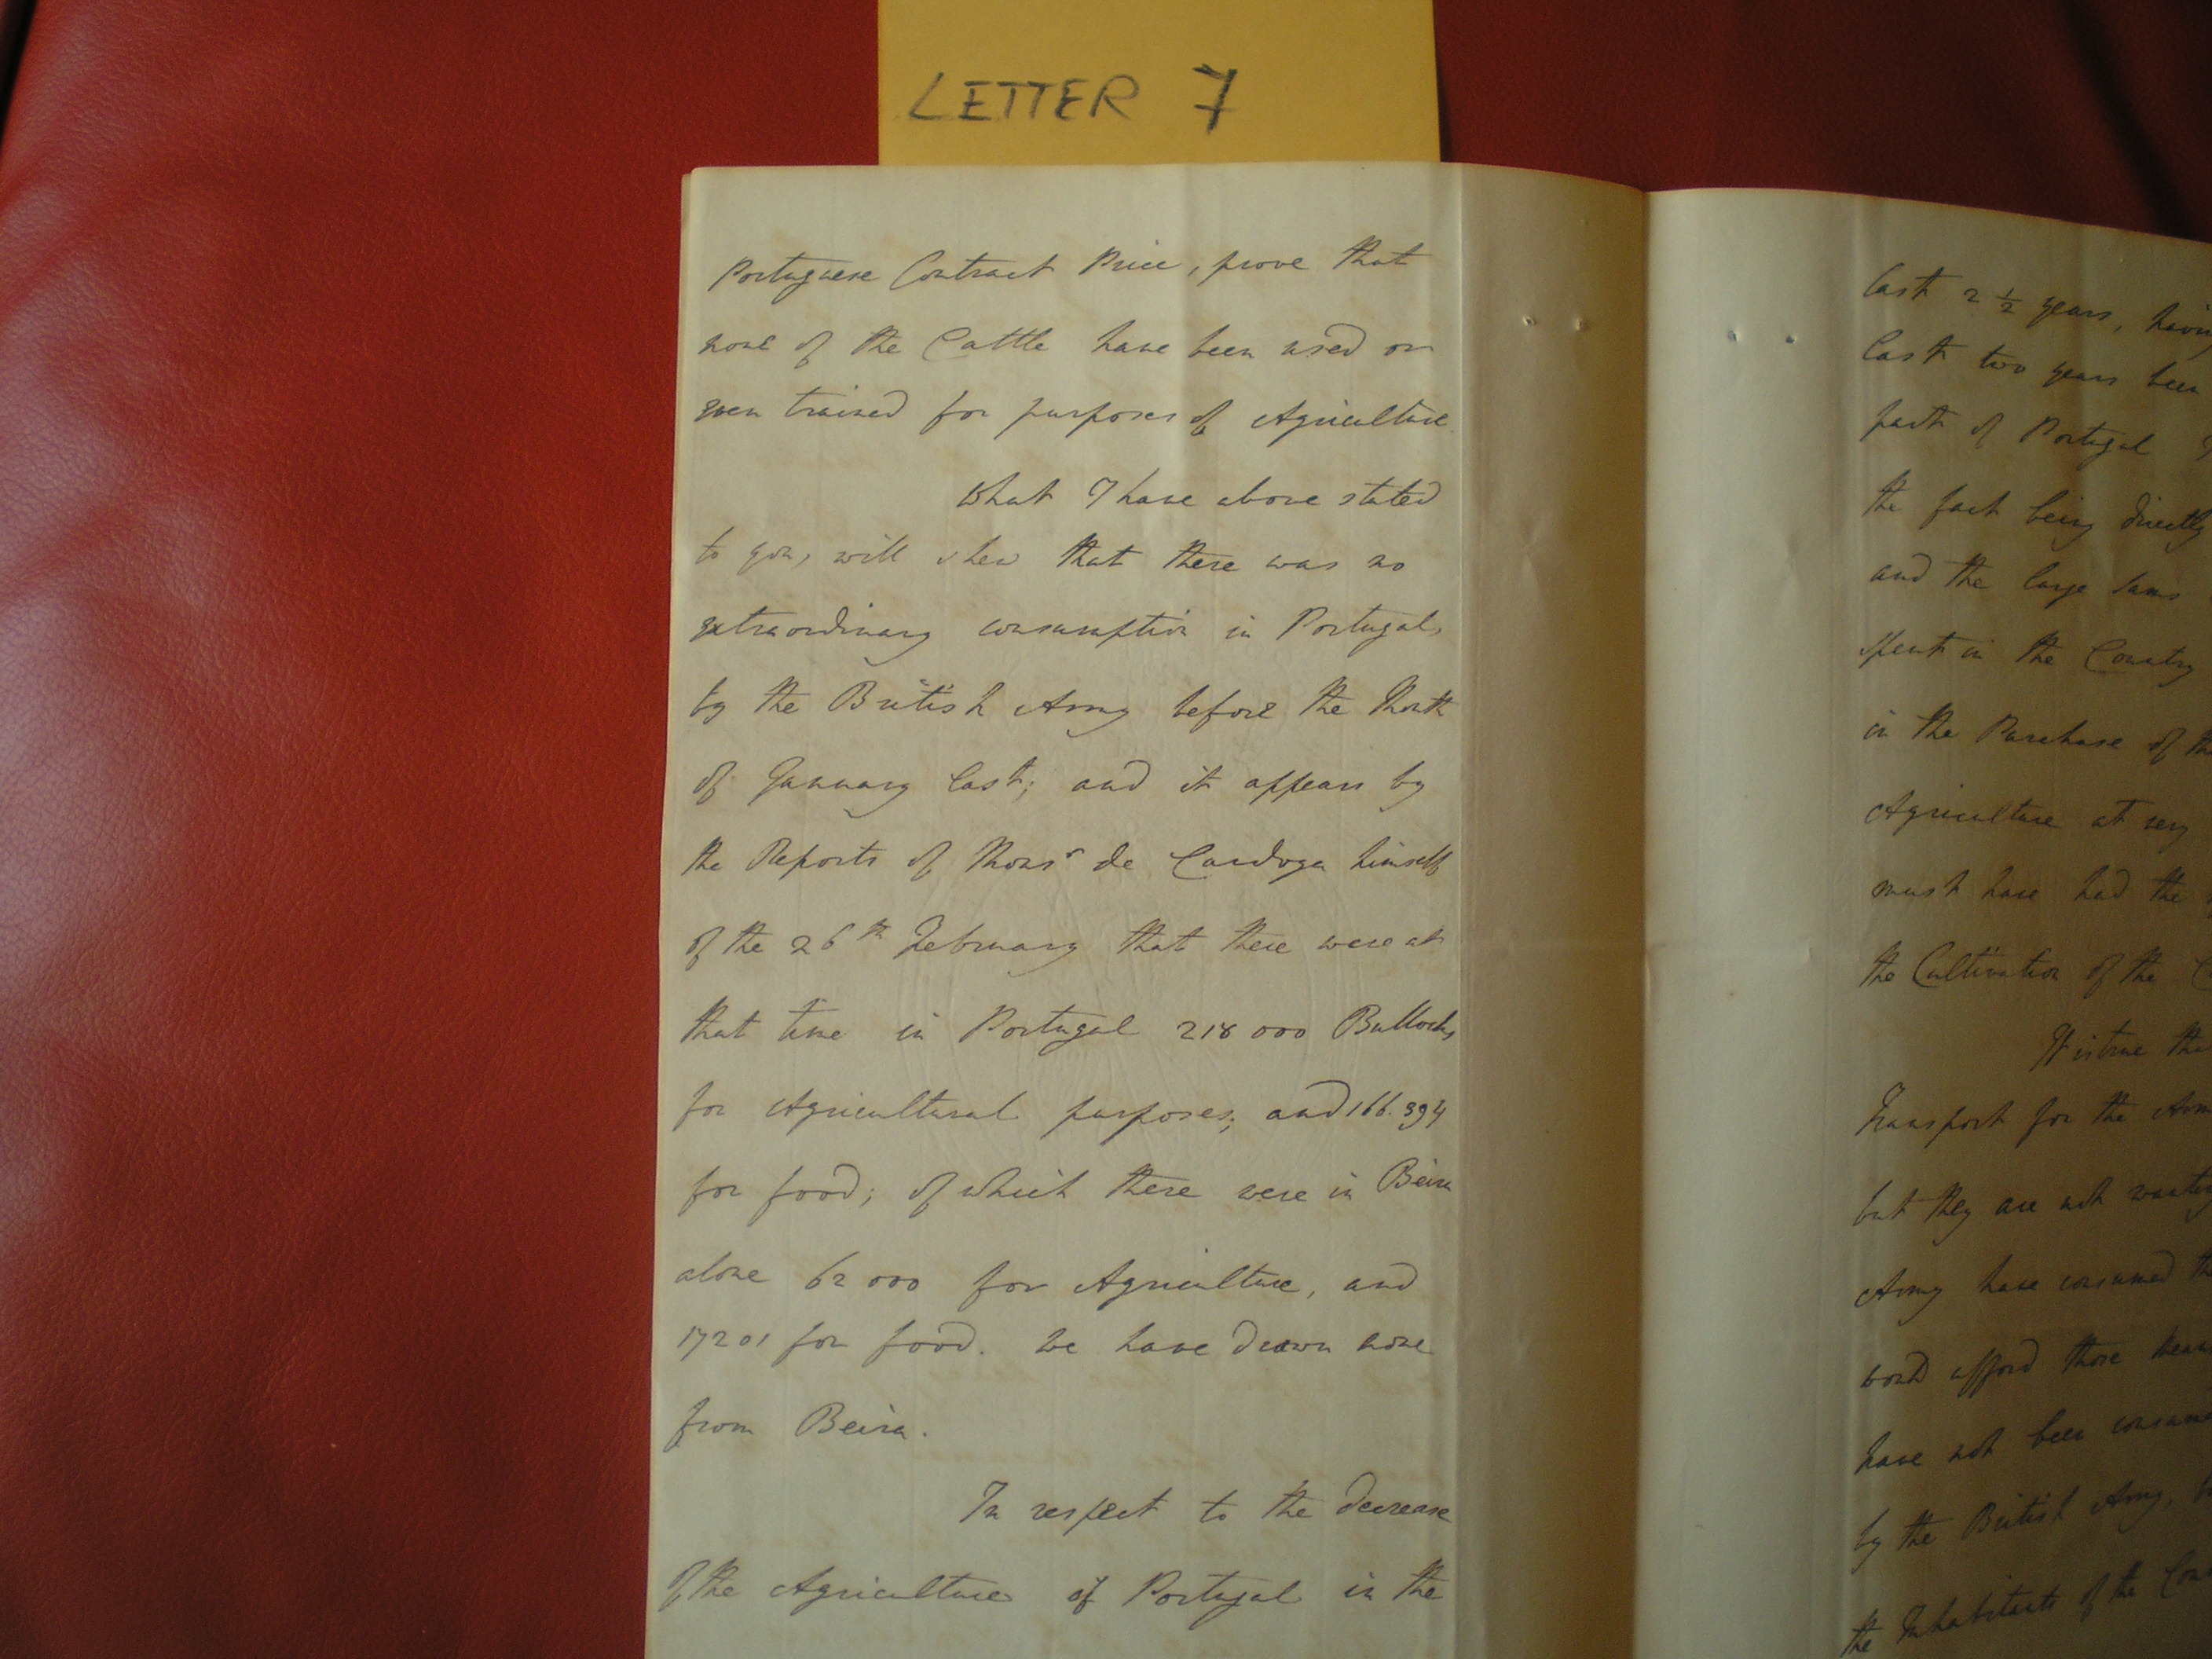 LETTER 7
Portuguese Contract Price, prove that
none of the Cattle have been used or
even trained for purposes of Agriculture.
What I have above stated
to you, will shew that there was no
extraordinary consumption in Portugal,
by the British Army before the Month
of January last; and it appears by
the Reports of Monsr de Cardoza himself
of the 26th February that there were at
that time in Portugal 218 000 Bullocks
for Agricultural purposes; and 166.394
for food; of which there were in Beira
alone 62 000 for Agriculture, and
17201 for food. We have drawn none
from Beira.
In respect to the decrease
of the Agriculture of Portugal in the
last 2 1/2 years, having
last two years been
part of Portugal
the fact being directly
and the large sums
spent in the Country
in the Purchase of the
Agriculture at very
must have had the
the Cultivation of the
It is true
Transport for the
but they are not wanting
Army have consumed
would afford those
have not been
by the British Army,
the Inhabitants of the